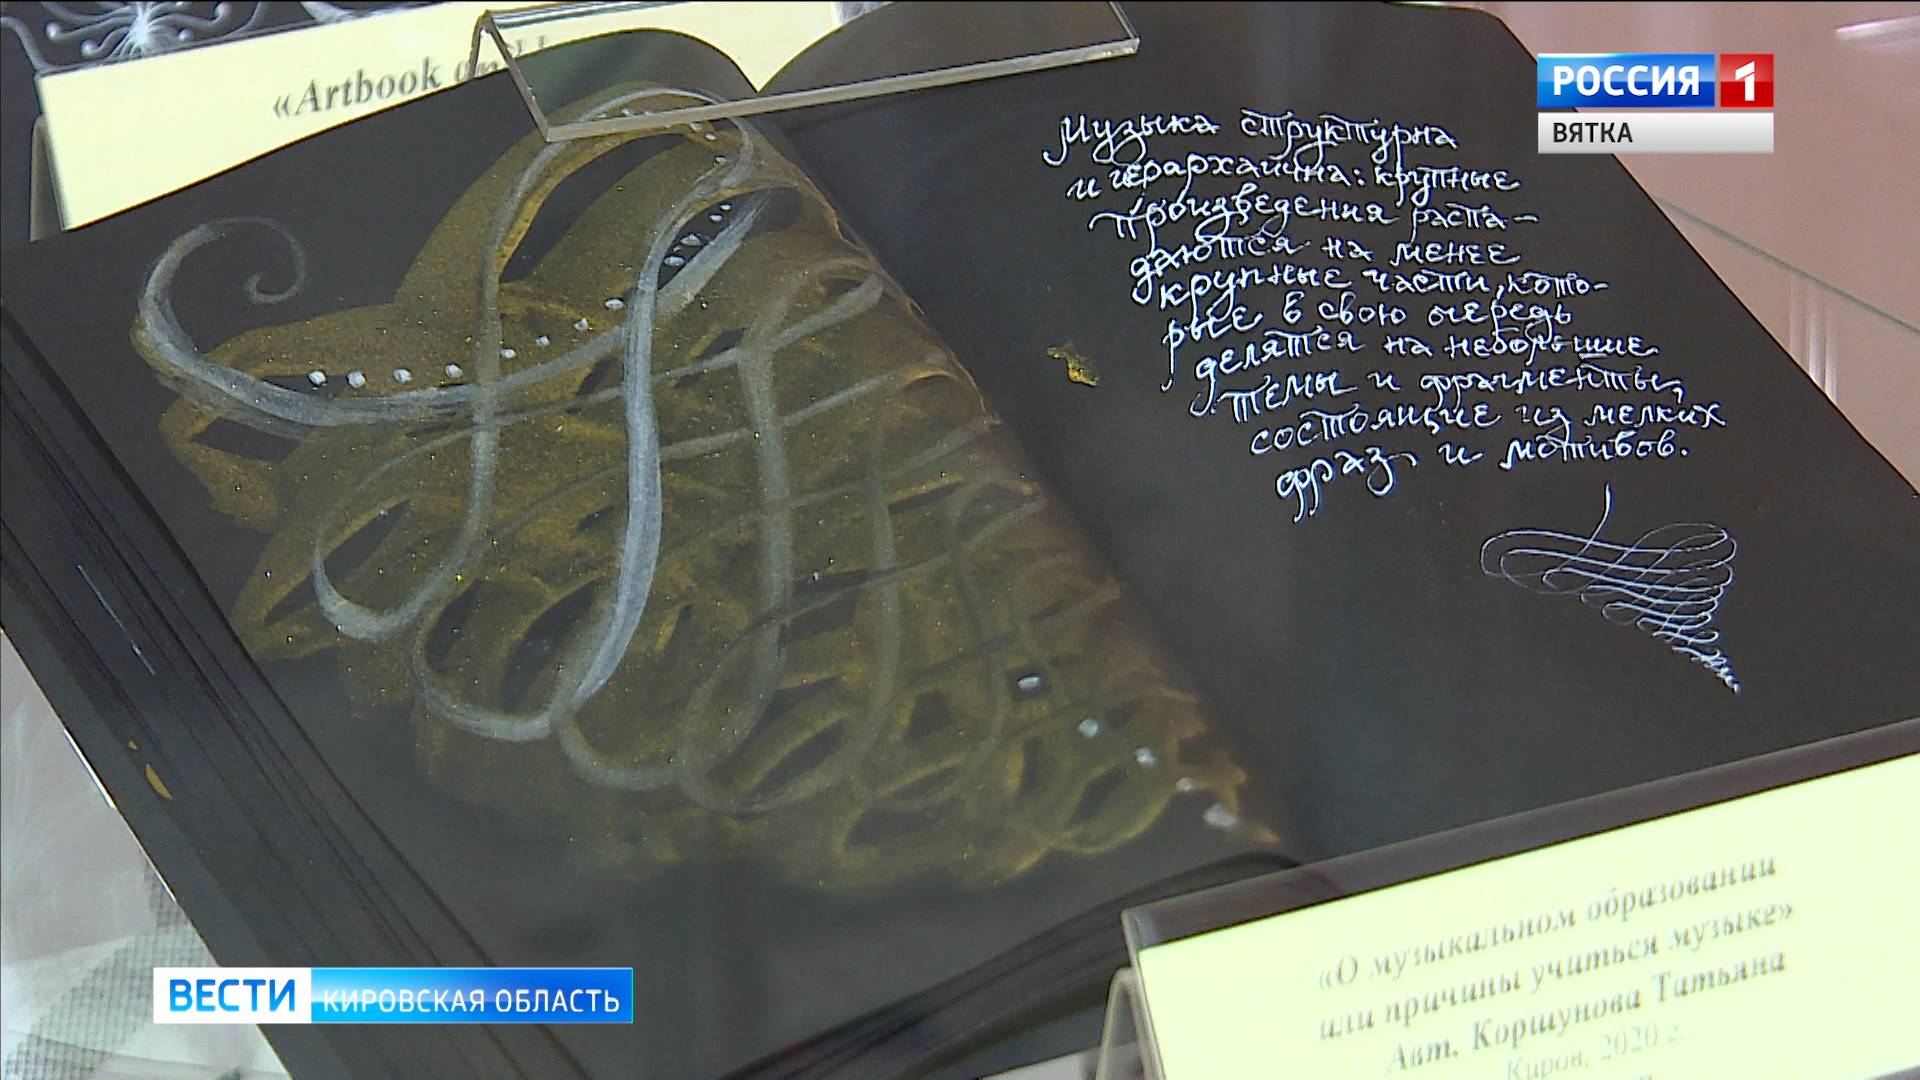 «Artbook
РОССИЯ 1
ВЯТКА
Музыка структурна
и иерархайчна: крупные
произведения распа-
даются на менее
крупные части, кото-
рые в свою очередь
делятся на небольшие
темы и фрагменты,
состоящие из мелких
фраз и мотивов.
«О музыкальном образовании
или причины учиться музыке»
Авт. Коршунова Татьяна
Киров, 2020 г.
ВЕСТИ КИРОВСКАЯ ОБЛАСТЬ